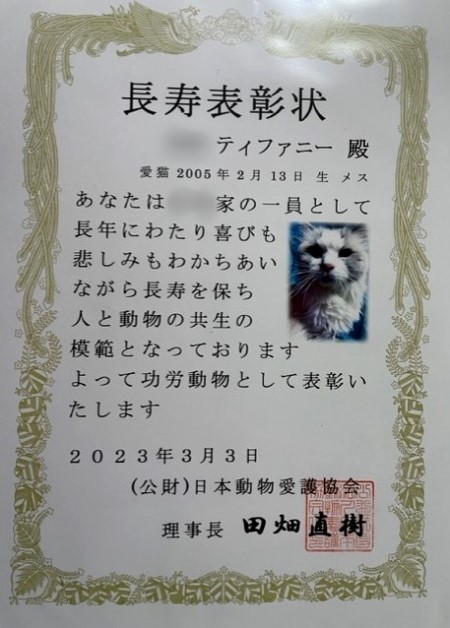 長寿表彰状
ティファニー 殿
愛猫 2005年2月13日 生 メス
あなたは 家の一員として
長年にわたり喜びも
悲しみもわかちあい
ながら長寿を保ち
人と動物の共生の
模範となっております
よって功労動物として表彰い
たします
2023年3月3日
(公財)日本動物愛護協会
理事長 田畑直樹